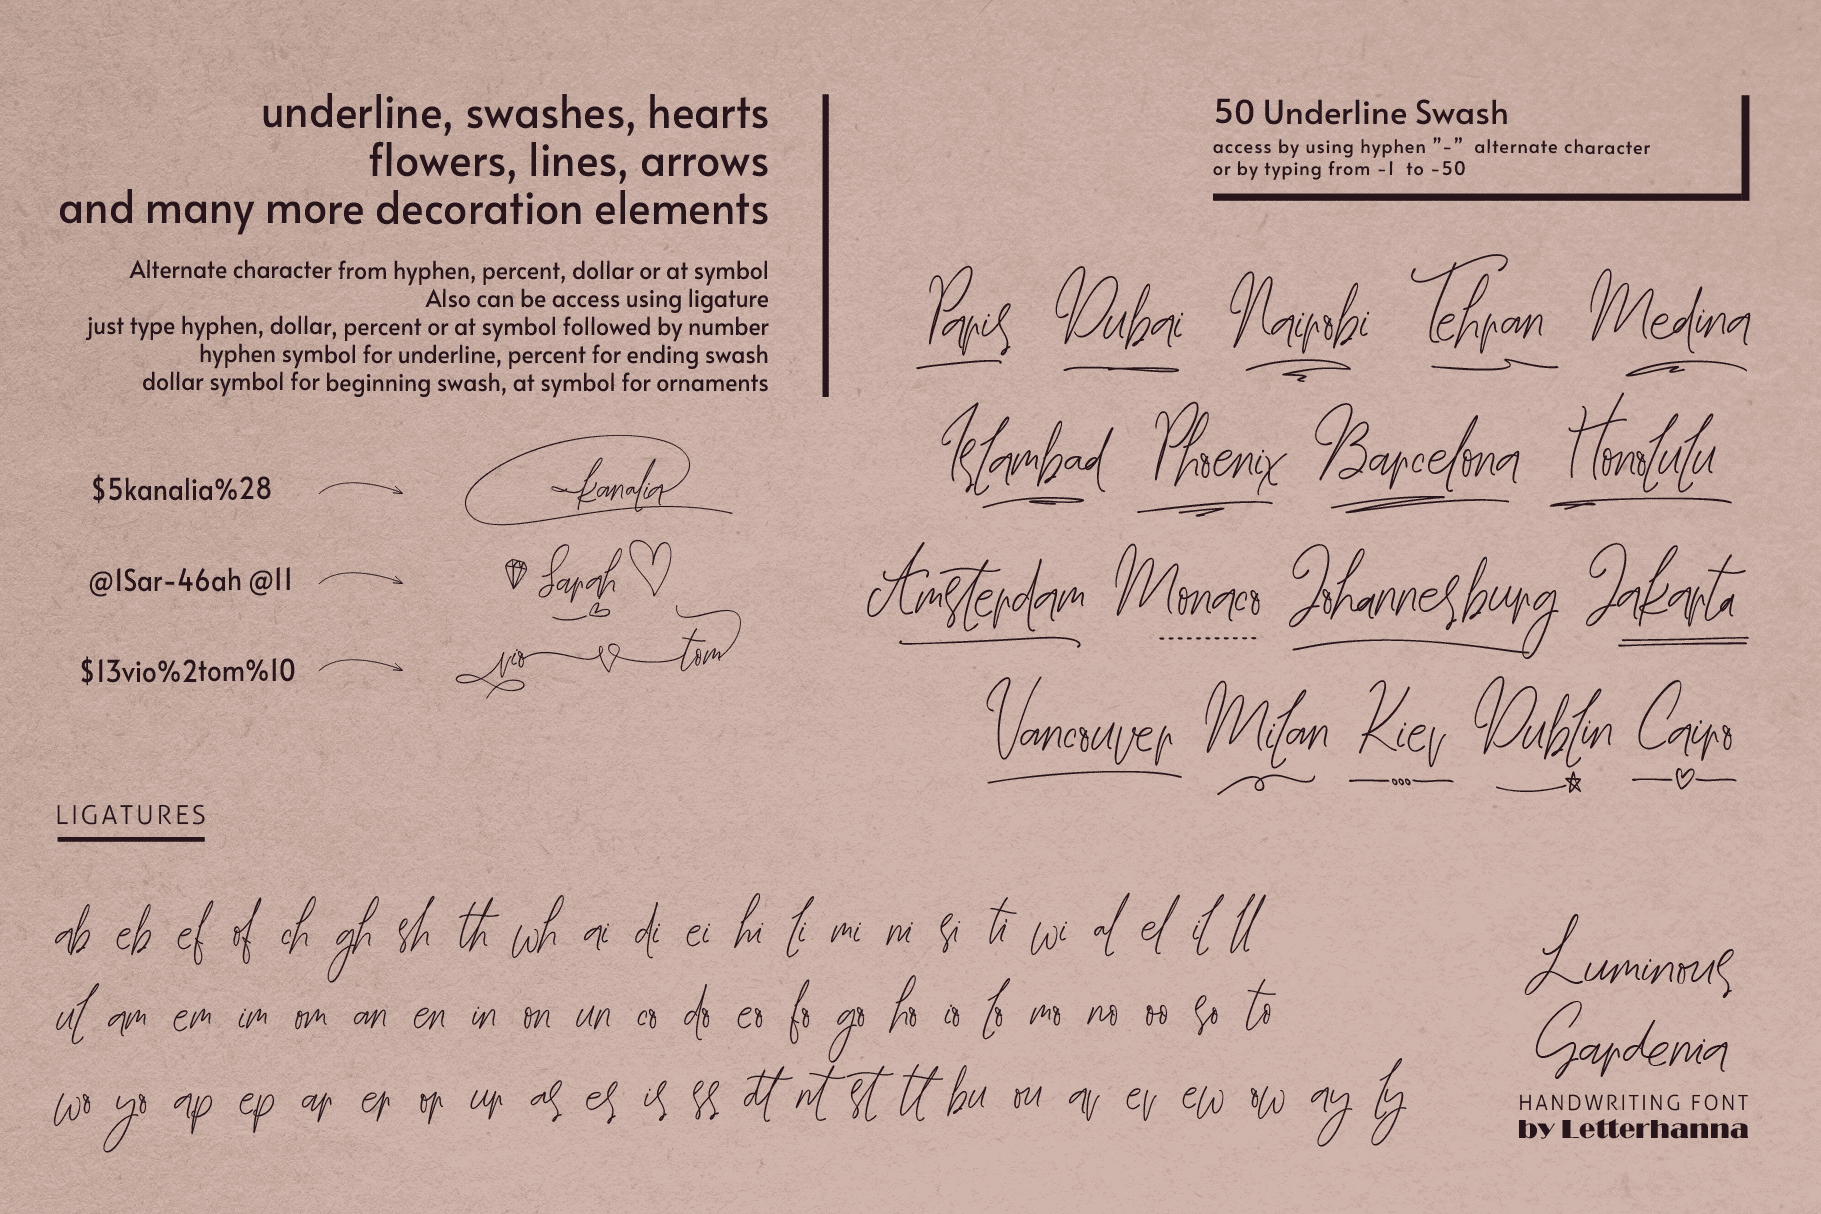 underline, swashes, hearts
flowers, lines, arrows
and many more decoration elements
Alternate character from hyphen, percent, dollar or at symbol
Also can be access using ligature
just type hyphen, dollar, percent or at symbol followed by number
hyphen symbol for underline, percent for ending swash
dollar symbol for beginning swash, at symbol for ornaments
$5kanalia%28
kanalia
@1Sar-46ah @11
Sarah
$13vio%2tom%10
vio tom
50 Underline Swash
access by using hyphen "-" alternate character
or by typing from -1 to -50
Paris Dubai Nairobi Tehran Medina
Islambad Phoenix Barcelona Honolulu
Amsterdam Monaco Johannesburg Jakarta
Vancouver Milan Kiev Dublin Cairo
LIGATURES
ab eb ef of ch gh sh th wh ai di ei hi li mi ni si ti wi al el il ll
ul am em im om an en in on un co do eo fo go ho io lo mo no oo so to
wo yo ap ep ar er or ur as es is ss tt nt st tt bu ou av ev ew ow ay ly
Luminous
Gardenia
HANDWRITING FONT
by Letterhanna